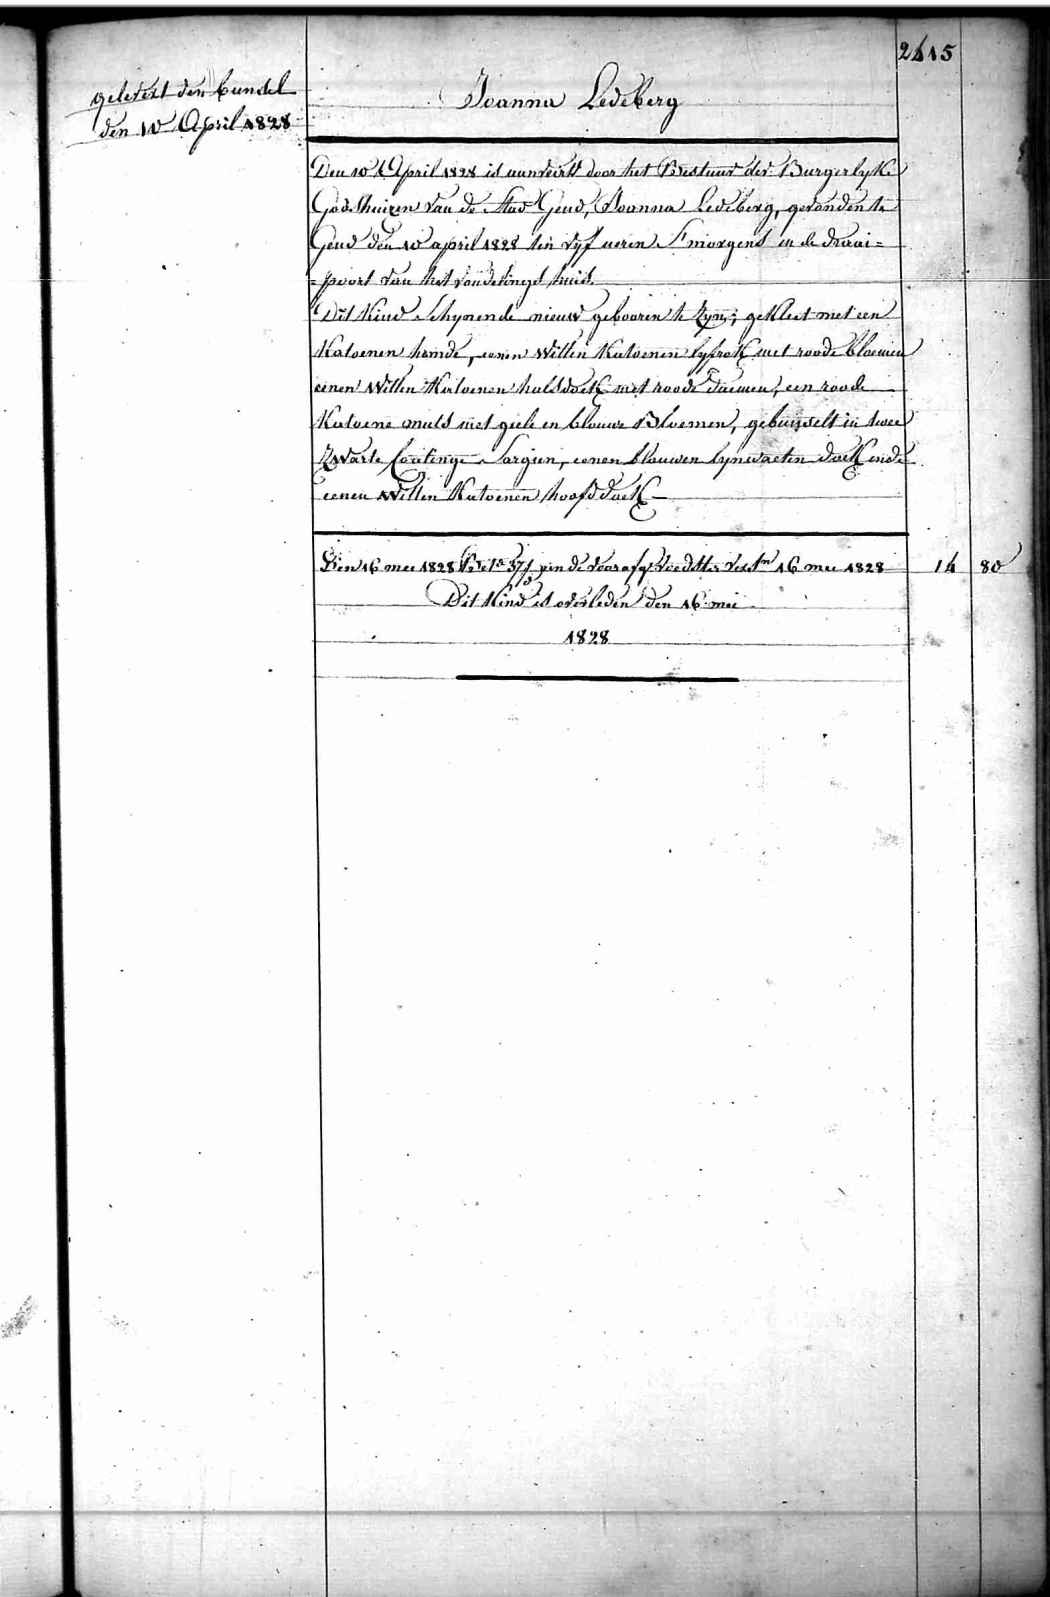 2415
gelevert den bundel
den 10 April 1828
Joanna Ledeberg
Den 10 April 1828 is aanveirt door het Bestuur der Burgerlyke
Godshuizen van de Stad Gend, Joanna Ledeberg, gevonden te
Gend den 10 april 1828 ten vyf ueren s'morgens in de draai=
=poort van het vondelingshuis.
Dit kind schynende nieuw gebooren te zyn; gekleet met een
katoenen hemde, eenen witten katoenen lyfrok met roode bloemen
eenen witten katoenen halsdoek met roode, een roode
katoene muts met geele en blauwe Bloemen, gebusselt in twee
zwarte Sargien, eenen blauwen lynwaeten doek ende
eenen witten katoenen hoofddoek
Den 16 mei 1828 37 in de 16 mei 1828 14 80
Dit kind is overleden den 16 mei
1828